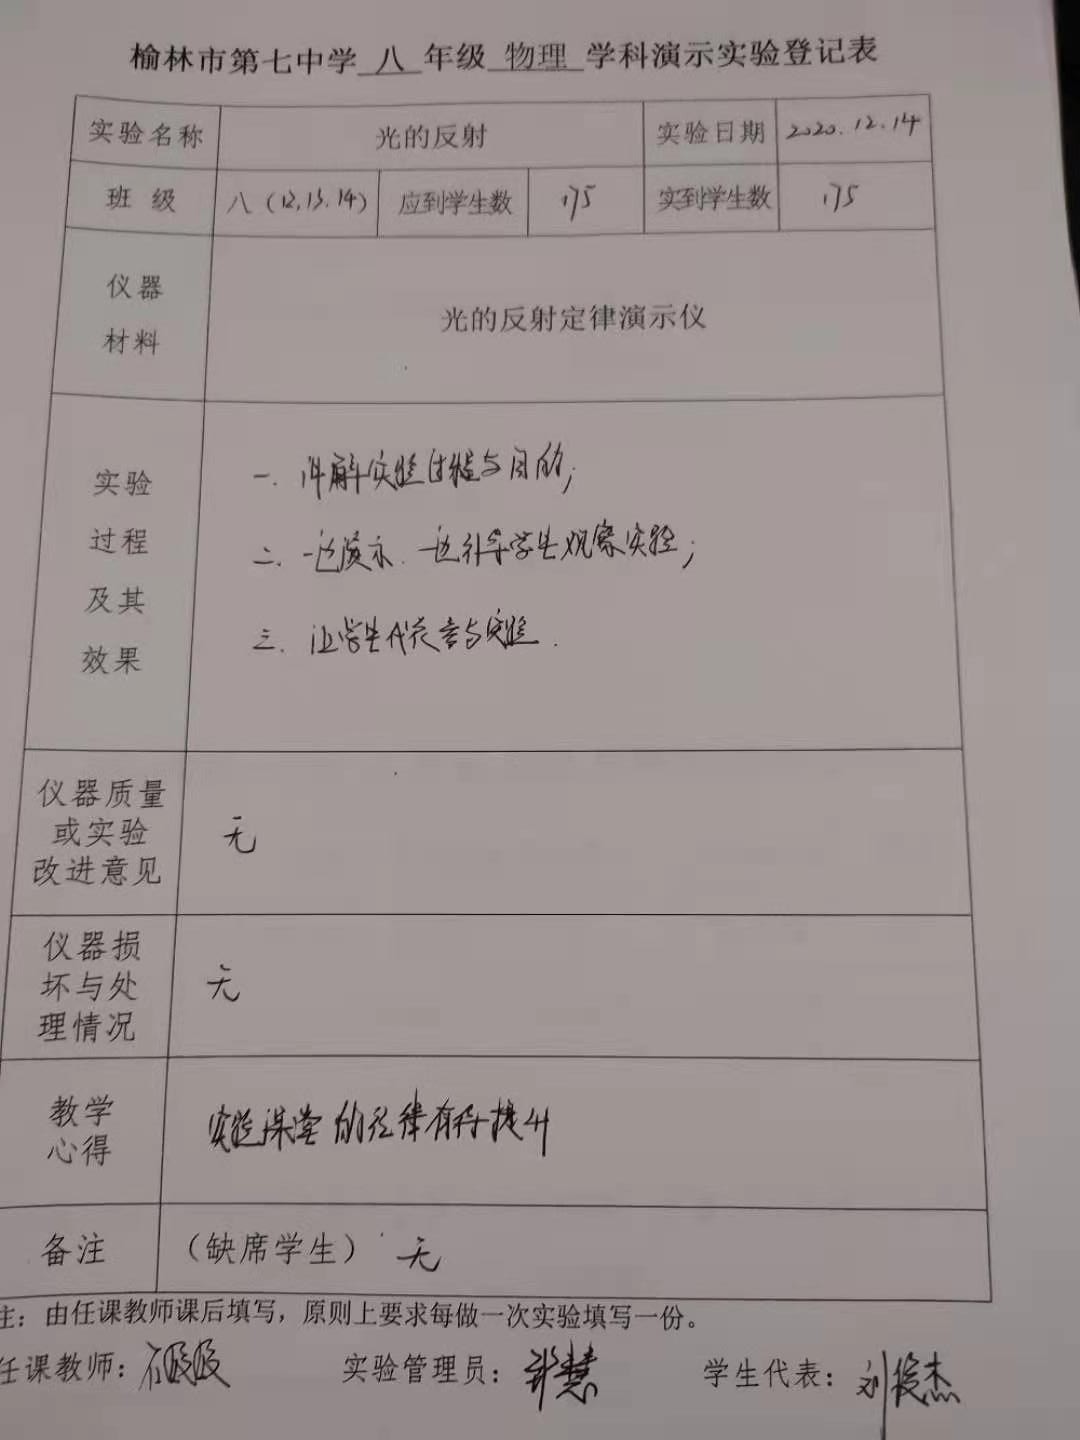 榆林市第七中学 八 年级 物理 学科演示实验登记表
实验名称 光的反射 实验日期 2020.12.14
班 级 八（12,13,14） 应到学生数 175 实到学生数 175
仪器
材料
光的反射定律演示仪
实验
过程
及其
效果
一. 讲解实验过程与目的;
二. 一边演示. 一边引导学生观察实验;
三. 让学生代表参与实验.
仪器质量
或实验
改进意见
无
仪器损
坏与处
理情况
无
教学
心得
实验课堂的纪律有待提升
备注 （缺席学生） 无
注：由任课教师课后填写，原则上要求每做一次实验填写一份。
任课教师: 实验管理员: 慧 学生代表: 刘俊杰